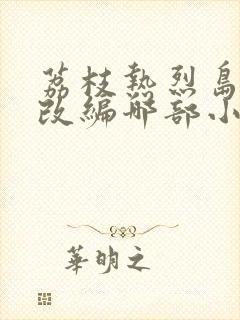 荔枝熱烈島
改編哪部小
華明之